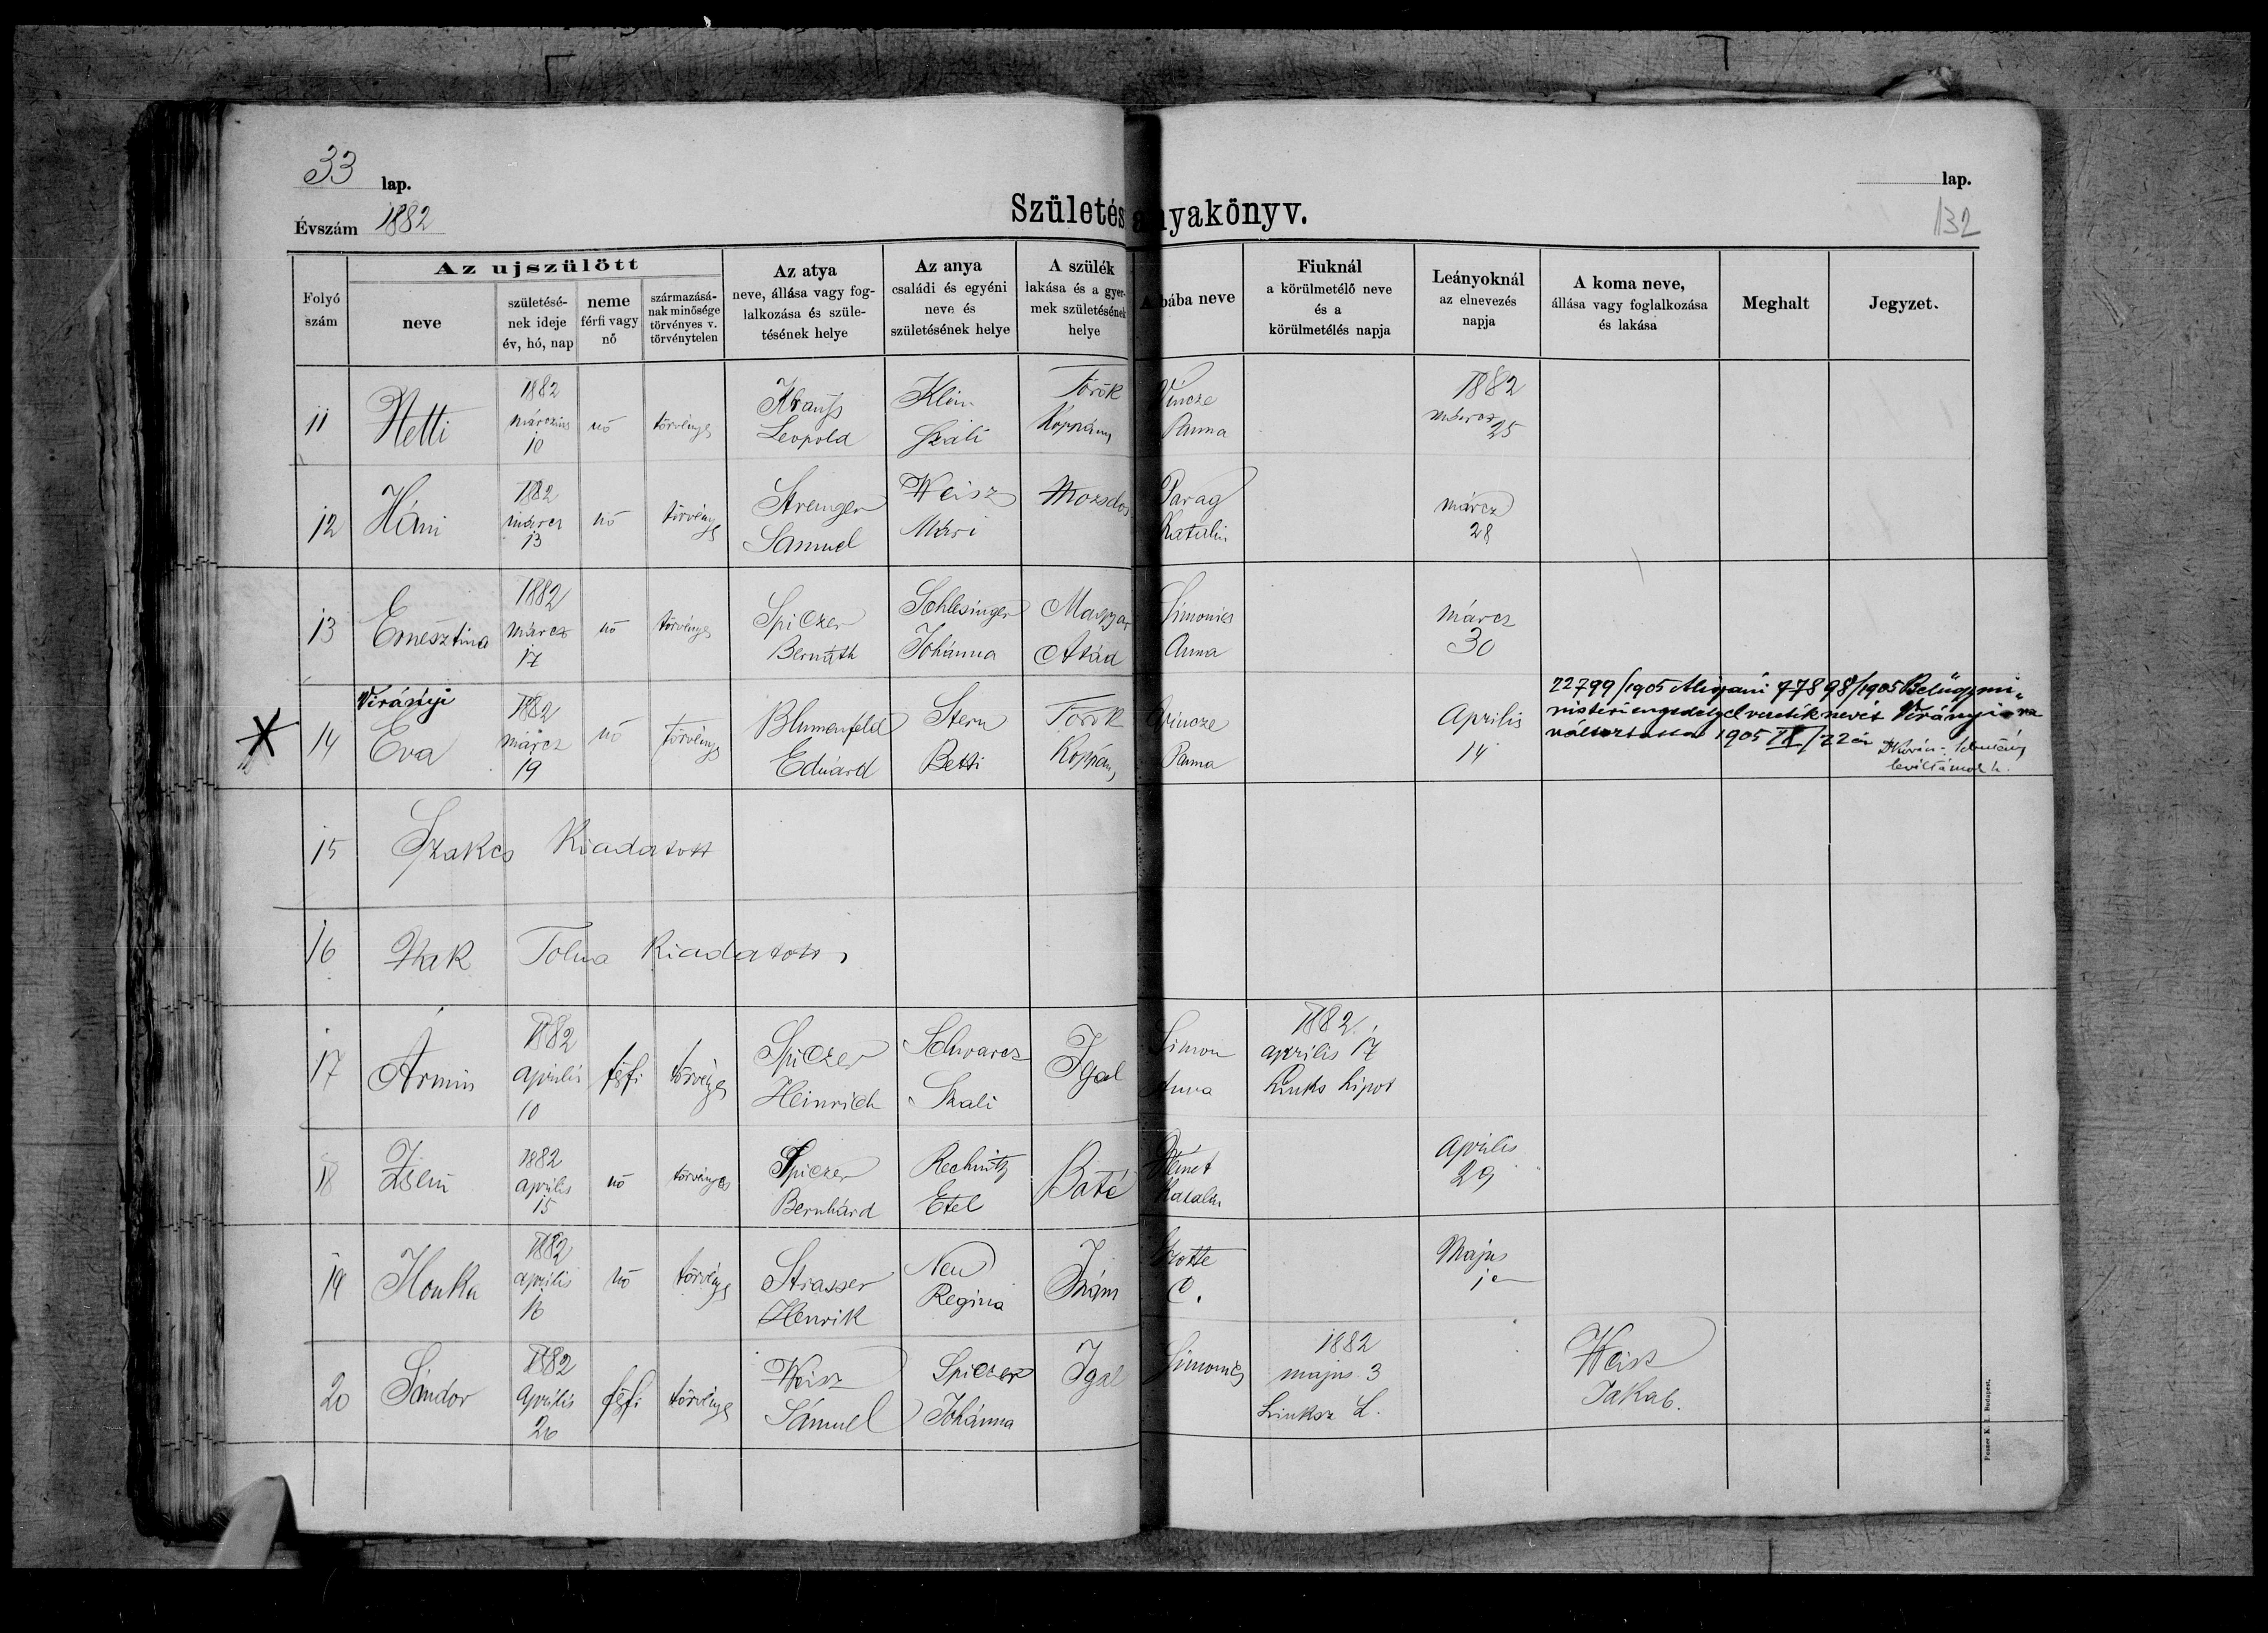 33 lap.
lap.
Évszám 1882
132
Születés anyakönyv.
Folyó szám
Az ujszülött
neve
születésé-
nek ideje
év, hó, nap
neme
férfi vagy
nő
származásá-
nak minősége
törvényes v.
törvénytelen
Az atya
neve, állása vagy fog-
lalkozása és szüle-
tésének helye
Az anya
családi és egyéni
neve és
születésének helye
A szülék
lakása és a gyer-
mek születésének
helye
A bába neve
Fiuknál
a körülmetélő neve
és a
körülmetélés napja
Leányoknál
az elnevezés
napja
A koma neve,
állása vagy foglalkozása
és lakása
Meghalt
Jegyzet.
11 Netti 1882 márczius 10 nő törvényes Krausz Leopold Klein Száli Török Koppány Vincze Panna 1882 márcz 25
12 Háni 1882 márcz 13 nő törvényes Strenger Samuel Weisz Mári Mozsdos Parag Katalin márcz 28
13 Ernesztina 1882 márcz 17 nő törvényes Spiczer Bernáth Schlesinger Johánna Magyar Atád Simonics Anna márcz 30
14 Virányi Eva 1882 márcz 19 nő törvényes Blumenfeld Eduárd Stern Betti Török Koppány Vincze Panna Aprilis 14
22799/1905 Alispáni 77898/1905 Belügymi-
nisteri engedélyel vezetéknevét Virányi-ra
változtatta 1905 IX/22én
15 Szakcs Kiadatott
16 Nak Tolna Kiadatott,
17 Ármin 1882 április 10 férfi törvényes Spiczer Heinrich Schwarcz Szali Igal Simon Anna 1882. április 17 Links Lipot
18 Zseni 1882 április 15 nő törvényes Spiczer Bernhárd Rechnitz Etel Baté Német Katalin április 29
19 Ilonka 1882 április 16 nő törvényes Strasser Henrik Neu Regina Inám C. Majus
20 Sándor 1882 április 20 férfi törvényes Weisz Sámuel Spiczer Johánna Igal Simonics 1882 majus 3 Linksz L. Weisz Jakab.
Posner K. L. Budapest.